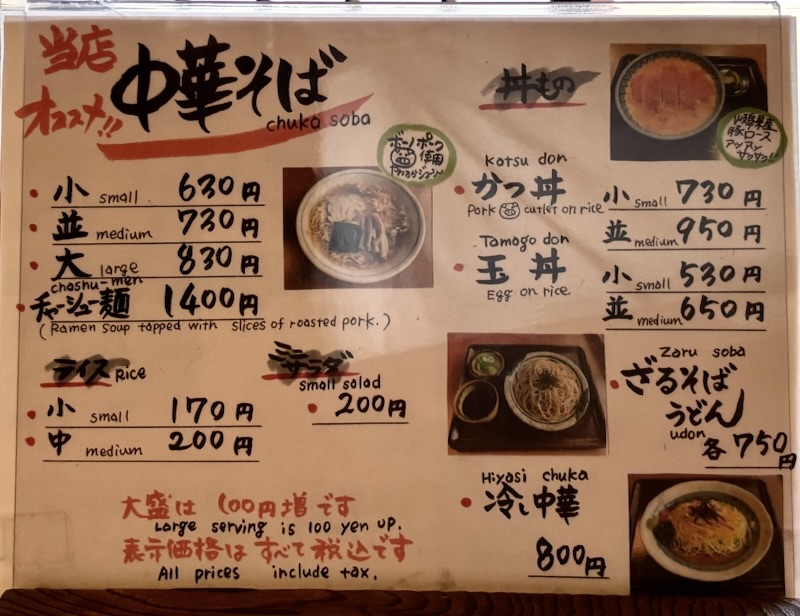 当店
オススメ!!
中華そば
chuka soba
小 small 630円
並 medium 730円
大 large 830円
chashu-men
チャーシュー麺 1400円
(Ramen soup topped with slices of roasted pork.)
ライス Rice
小 small 170円
中 medium 200円
ミニサラダ
small salad
200円
丼もの
Katsu don
かつ丼
Pork cutlet on rice
小 small 730円
並 medium 950円
Tamago don
玉丼
Egg on rice
小 small 530円
並 medium 650円
豚ロース
Zaru soba
ざるそば
うどん
udon
各750円
Hiyasi chuka
冷し中華
800円
大盛は 100円増です
Large serving is 100 yen up.
表示価格は すべて税込です
All prices include tax.